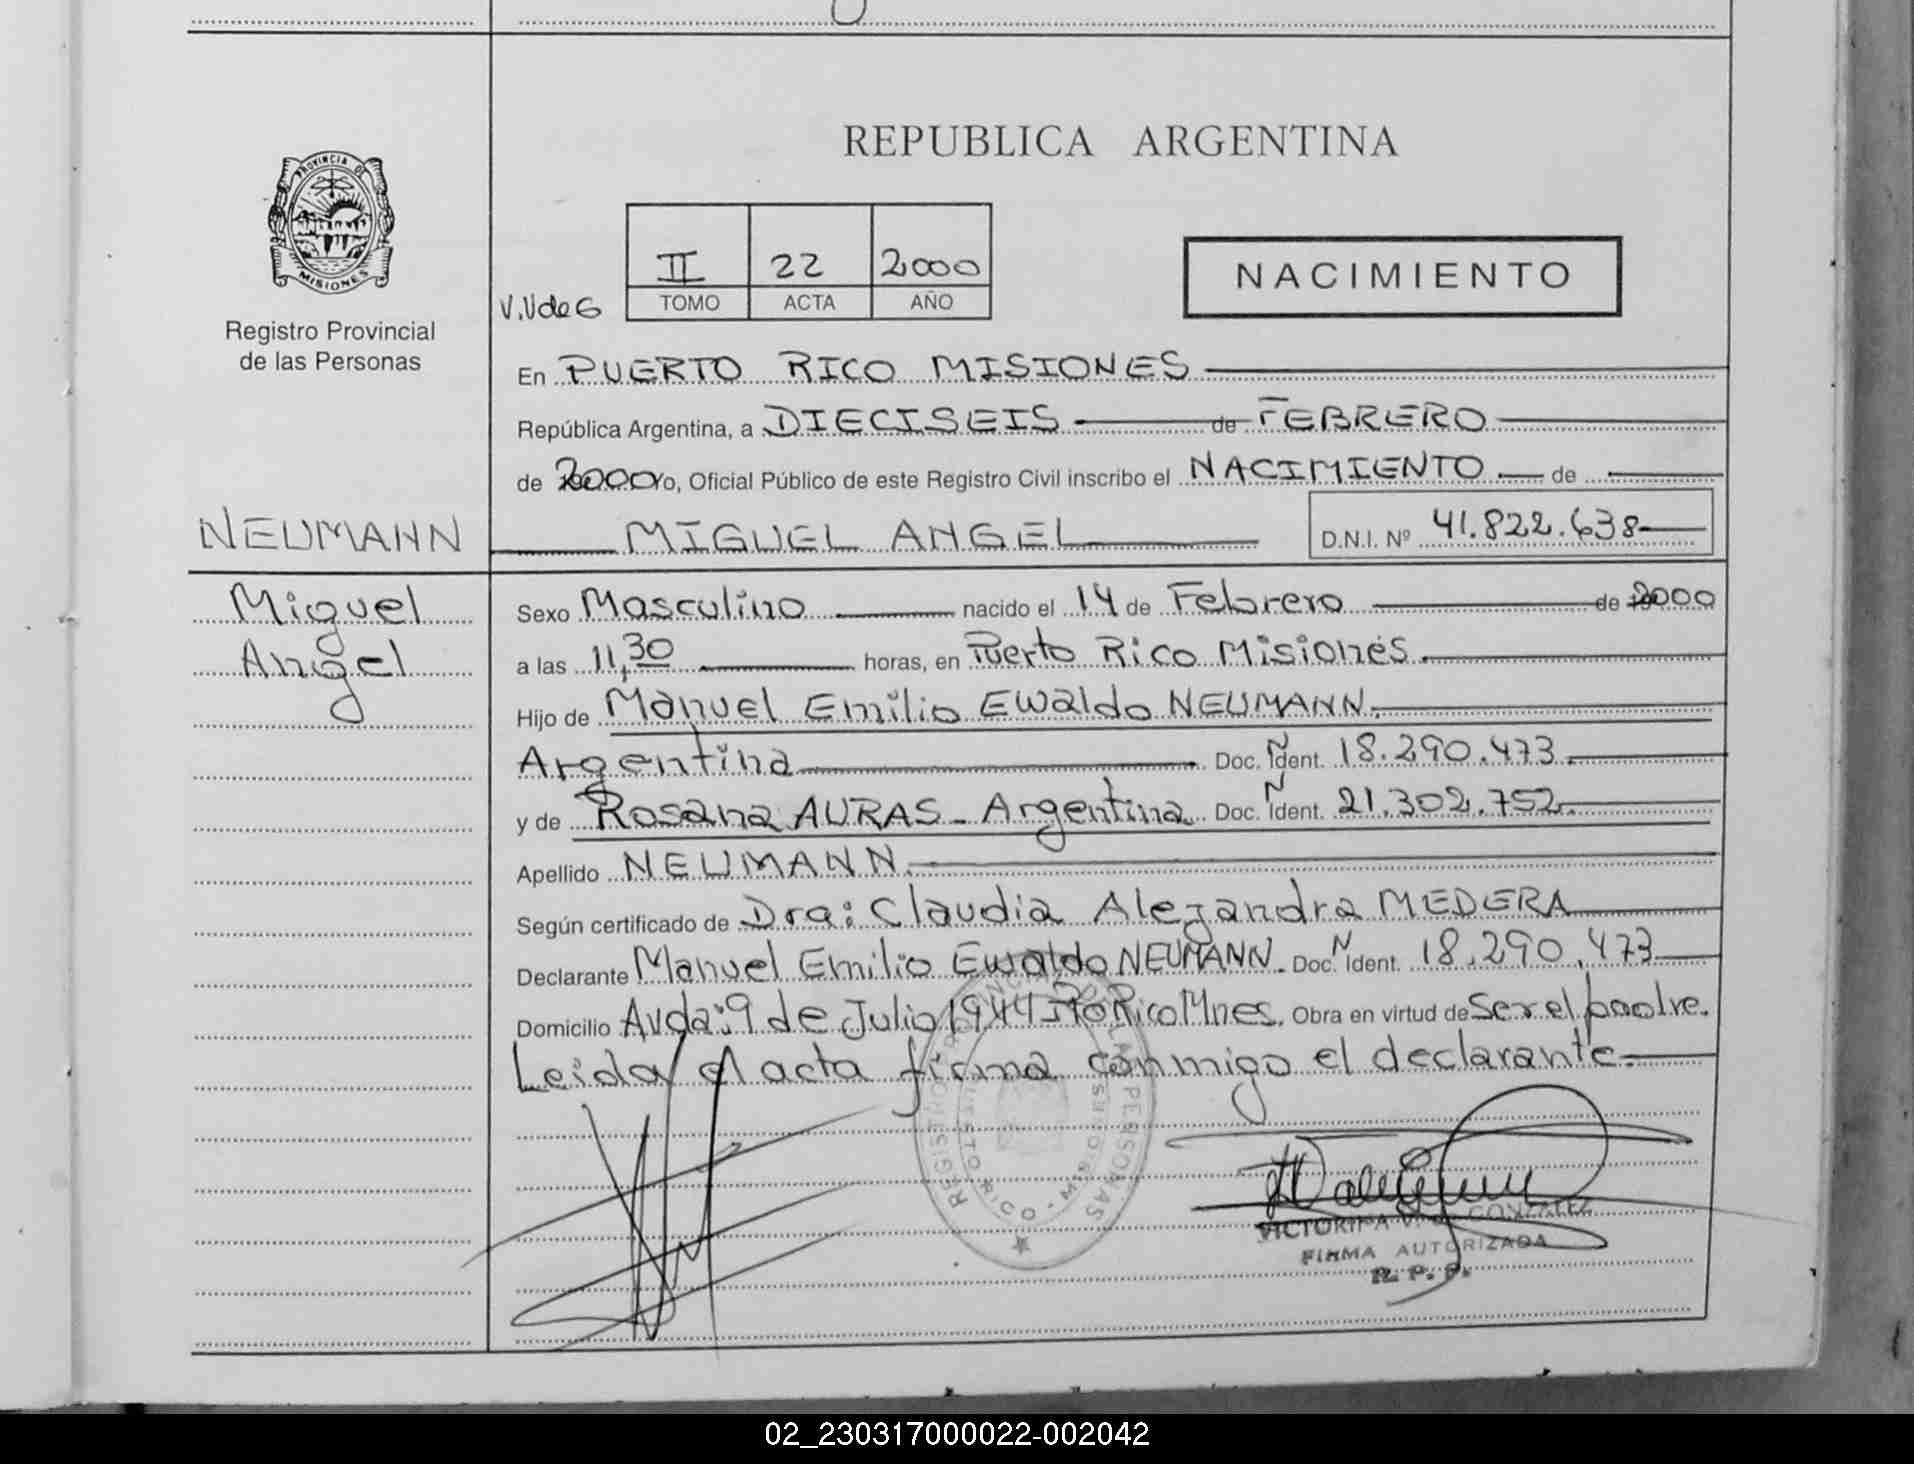 REPUBLICA ARGENTINA
PROVINCIA DE
MISIONES
Registro Provincial
de las Personas
V.V de G
II 22 2000
TOMO ACTA AÑO
NACIMIENTO
En PUERTO RICO MISIONES
República Argentina, a DIECISEIS de FEBRERO
de 2000 Yo, Oficial Público de este Registro Civil inscribo el NACIMIENTO de
NEUMANN MIGUEL ANGEL D.N.I. Nº 41.822.638
Miguel
Angel
Sexo Masculino nacido el 14 de Febrero de 2000
a las 11,30 horas, en Puerto Rico Misiones
Hijo de Manuel Emilio Ewaldo NEUMANN.
Argentina Doc. N Ident. 18.290.473.
y de Rosana AURAS - Argentina Doc. N Ident. 21.302.752.
Apellido NEUMANN.
Según certificado de Dra: Claudia Alejandra MEDERA
Declarante Manuel Emilio Ewaldo NEUMANN. Doc. N Ident. 18.290.473
Domicilio Avda: 9 de Julio 1944 Pto Rico Mnes. Obra en virtud de Ser el padre.
Leida el acta firma conmigo el declarante.
REGISTRO PROVINCIAL DE LAS PERSONAS
MISIONES
VICTORINA V. de GONZALEZ
FIRMA AUTORIZADA
R. P. P.
02_230317000022-002042